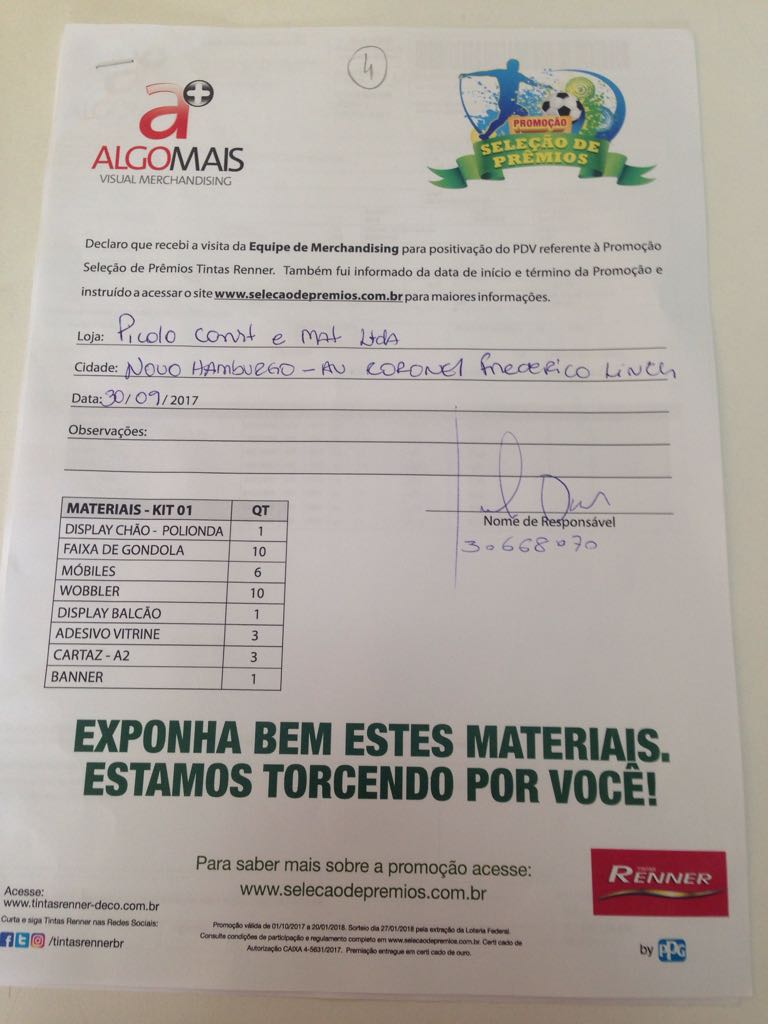 4
a+
ALGOMAIS
VISUAL MERCHANDISING
PROMOÇÃO
SELEÇÃO DE
PRÊMIOS
Declaro que recebi a visita da Equipe de Merchandising para positivação do PDV referente à Promoção
Seleção de Prêmios Tintas Renner. Também fui informado da data de início e término da Promoção e
instruído a acessar o site www.selecaodepremios.com.br para maiores informações.
Loja: Picolo Const e Mat Ltda
Cidade: NOVO HAMBURGO - AV CORONEL FREDERICO LINCK
Data: 30/09/2017
Observações:
Nome de Responsável
30668070
MATERIAIS - KIT 01 QT
DISPLAY CHÃO - POLIONDA 1
FAIXA DE GONDOLA 10
MÓBILES 6
WOBBLER 10
DISPLAY BALCÃO 1
ADESIVO VITRINE 3
CARTAZ - A2 3
BANNER 1
EXPONHA BEM ESTES MATERIAIS.
ESTAMOS TORCENDO POR VOCÊ!
Para saber mais sobre a promoção acesse:
www.selecaodepremios.com.br
TINTAS
RENNER
Acesse:
www.tintasrenner-deco.com.br
Curta e siga Tintas Renner nas Redes Sociais:
/tintasrennerbr
Promoção válida de 01/10/2017 a 20/01/2018. Sorteio dia 27/01/2018 pela extração da Loteria Federal.
Consulte condições de participação e regulamento completo em www.selecaodepremios.com.br. Certi cado de
Autorização CAIXA 4-5631/2017. Premiação entregue em certi cado de ouro.
by PPG